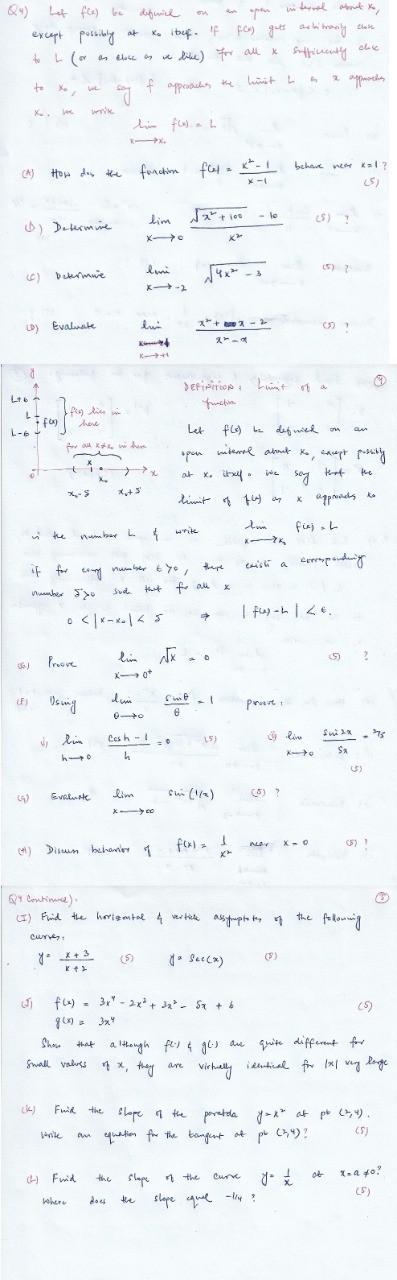 Q4) Let f(x) be defined on an open interval about x₀,
except possibly at x₀ itself. If f(x) gets arbitrarily close
to L (or as close as we like) for all x sufficiently close
to x₀, we say f approaches the limit L as x approaches
x₀. We write
lim f(x) = L
x→x₀
(A) How does the function f(x) = (x² - 1)/(x - 1) behave near x=1?
(5)
(B) Determine lim x→0 (√(x² + 100) - 10)/x² (5) ?
(C) Determine lim x→-2 √(4x² - 3) (5) ?
(D) Evaluate lim x→+1 (x² + x - 2)/(x² - x) (5) ?
(4)
DEFINITION: Limit of a
function
y
L+ϵ
L
L-ϵ
f(x)
f(x) lies in
here
for all x≠x₀ in here
x
x₀
0
x
x₀-δ x₀+δ
Let f(x) be defined on an
open interval about x₀, except possibly
at x₀ itself. We say that the
limit of f(x) as x approaches x₀
is the number L & write lim x→x₀ f(x) = L
if for every number ϵ>0, there exists a corresponding
number δ>0 such that for all x
0 < |x-x₀| < δ ⇒ |f(x)-L| < ϵ.
(E) Prove lim x→0⁺ √x = 0 (5) ?
(F) Using lim θ→0 sinθ/θ = 1 prove:
i) lim h→0 (cosh - 1)/h = 0 (5) ii) lim x→0 sin2x/5x = 2/5
(5)
(G) Evaluate lim x→∞ sin(1/x) (5) ?
(H) Discuss behavior of f(x) = 1/x² near x=0 (5) ?
Q4 Continued).
(5)
(I) Find the horizontal & vertical assymptotes of the following
curves.
y = (x+3)/(x+2) (5) y = sec(x) (5)
(J) f(x) = 3x⁴ - 2x³ + 3x² - 5x + 6 (5)
g(x) = 3x⁴
Show that although f(·) & g(·) are quite different for
small values of x, they are virtually identical for |x| very large
(K) Find the slope of the parabola y=x² at pt (2,4).
Write an equation for the tangent at pt (2,4)? (5)
(L) Find the slope of the curve y = 1/x at x=a≠0?
Where does the slope equal -1/4 ? (5)